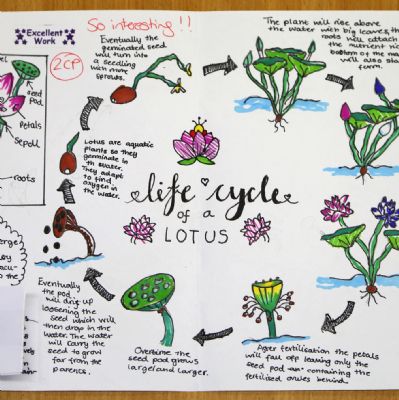 Excellent
Work
So interesting!!
2CP
Eventually the
germinated seed
will turn into
a seedling
with more
sprouts.
The plant will rise above
the water with big leaves, the
roots will attach
the nutrient
bottom of the
will also
form.
seed
pod
Petals
Sepal
roots
Lotus are aquatic
plants so they
germinate in
th water.
They adapt
to find
oxygen in
the water.
life cycle
of a
LOTUS
Eventually
the pod
will drip up
loosening the
seed which will
then drop in the
water. The water
will carry the
seed to grow
far from the
parents.
Overtime the
seed pod grows
larger and larger.
After fertilisation the petals
will fall off leaving only the
seed pod containing the
fertilized ovules behind.